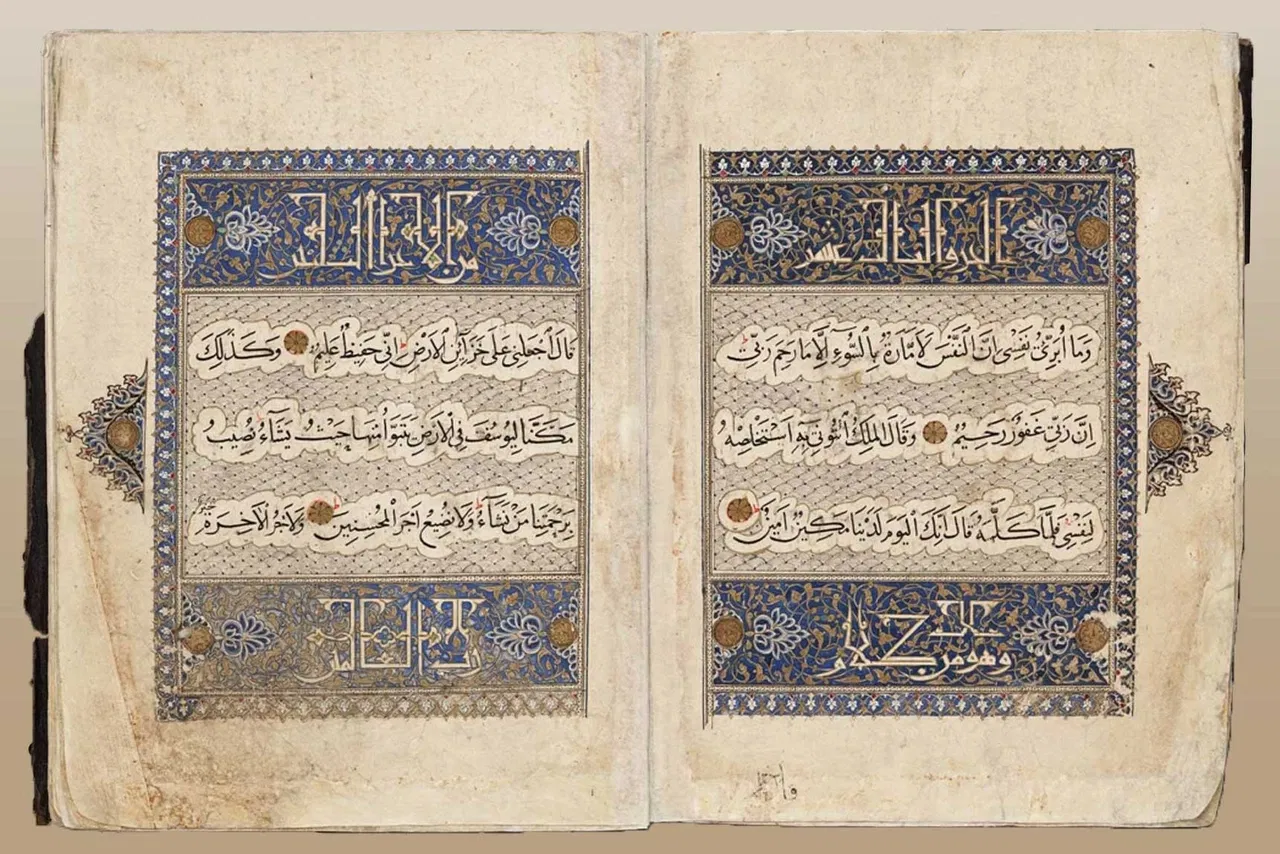 الجزو الثالث عشر
وَمَا أُبَرِّئُ نَفْسِي إِنَّ النَّفْسَ لَأَمَّارَةٌ بِالسُّوءِ إِلَّا مَا رَحِمَ رَبِّي
إِنَّ رَبِّي غَفُورٌ رَحِيمٌ وَقَالَ الْمَلِكُ ائْتُونِي بِهِ أَسْتَخْلِصْهُ
لِنَفْسِي فَلَمَّا كَلَّمَهُ قَالَ إِنَّكَ الْيَوْمَ لَدَيْنَا مَكِينٌ أَمِينٌ
وهو من كلام الله
من الاجزا الثلثين
قَالَ اجْعَلْنِي عَلَى خَزَآئِنِ الْأَرْضِ إِنِّي حَفِيظٌ عَلِيمٌ وَكَذَلِكَ
مَكَّنَّا لِيُوسُفَ فِي الْأَرْضِ يَتَبَوَّأُ مِنْهَا حَيْثُ يَشَآءُ نُصِيبُ
بِرَحْمَتِنَا مَنْ نَشَآءُ وَلَا نُضِيعُ أَجْرَ الْمُحْسِنِينَ وَلَأَجْرُ الْآخِرَةِ
رب العالمين